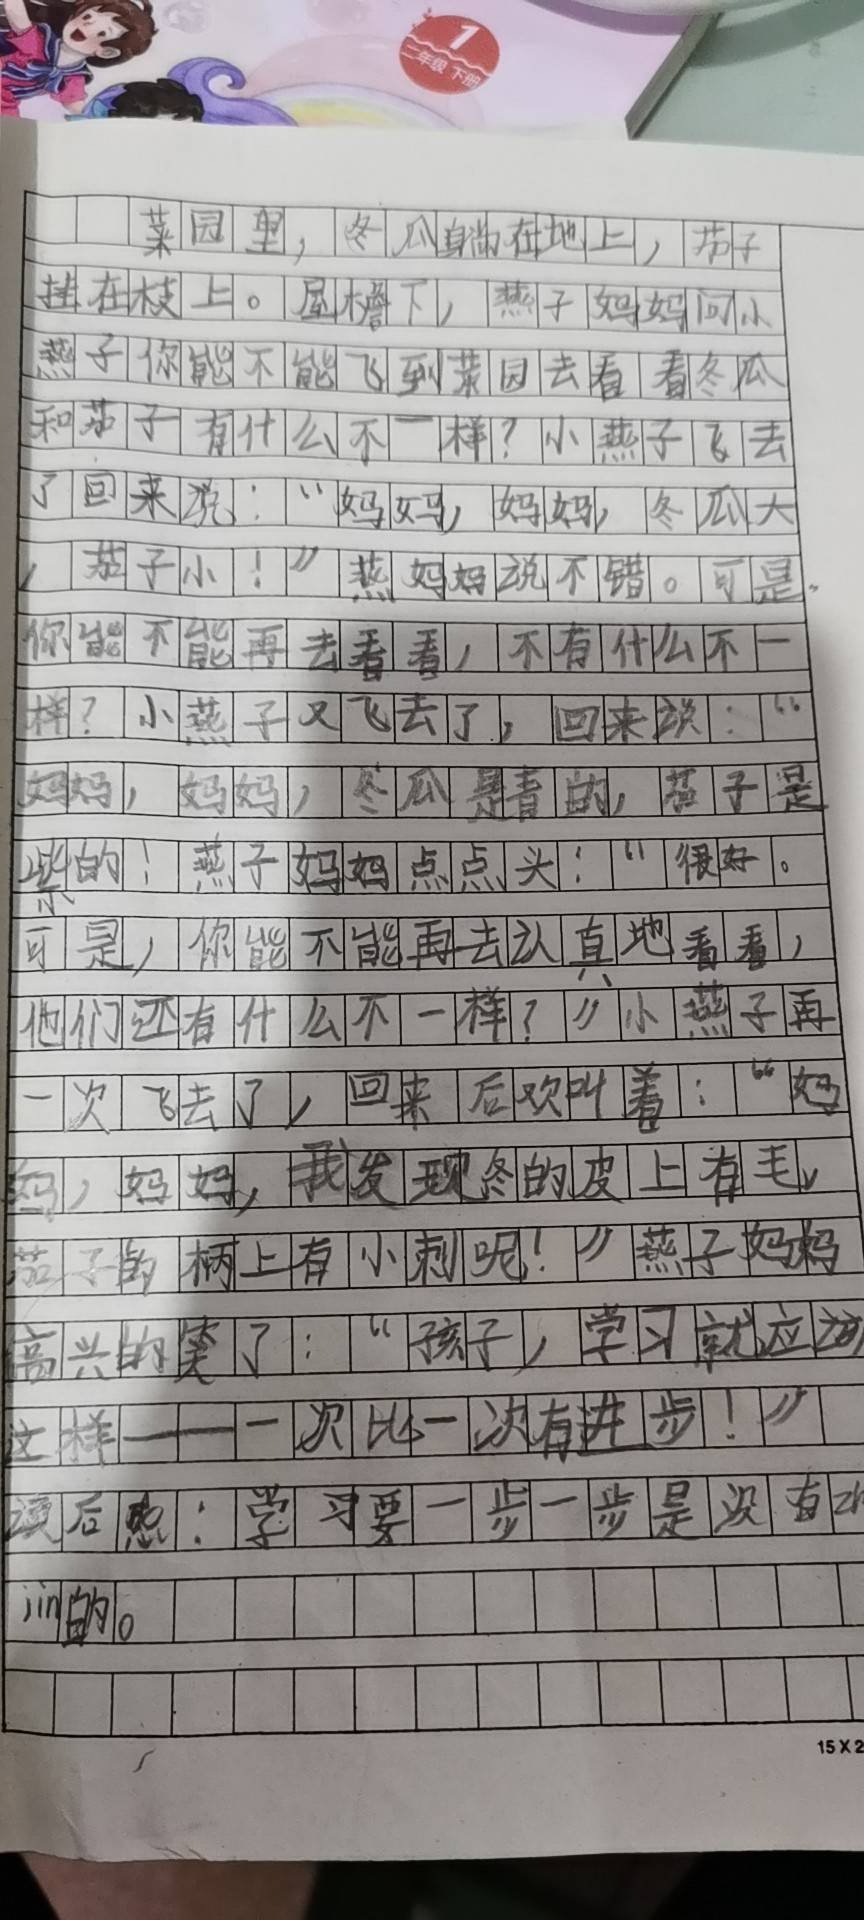 1
二年级 下册
菜园里，冬瓜躺在地上，茄子
挂在枝上。屋檐下，燕子妈妈问小
燕子你能不能飞到菜园去看看冬瓜
和茄子有什么不一样？小燕子飞去
了回来说：“妈妈，妈妈，冬瓜大
，茄子小！”燕妈妈说不错。可是
你能不能再去看看，不有什么不一
样？小燕子又飞去了，回来说：“
妈妈，妈妈，冬瓜是青的，茄子是
紫的！燕子妈妈点点头：“很好。
可是，你能不能再去认真地看看，
他们还有什么不一样？”小燕子再
一次飞去了，回来后欢叫着：“妈
妈，妈妈，我发现冬的皮上有毛，
茄子的柄上有小刺呢！”燕子妈妈
高兴的笑了：“孩子，学习就应该
这样——一次比一次有进步！”
读后感：学习要一步一步是没有zh
jin的。
15×2